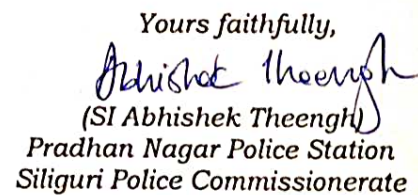 Yours faithfully,
Abhishek Theengh
(SI Abhishek Theengh)
Pradhan Nagar Police Station
Siliguri Police Commissionerate